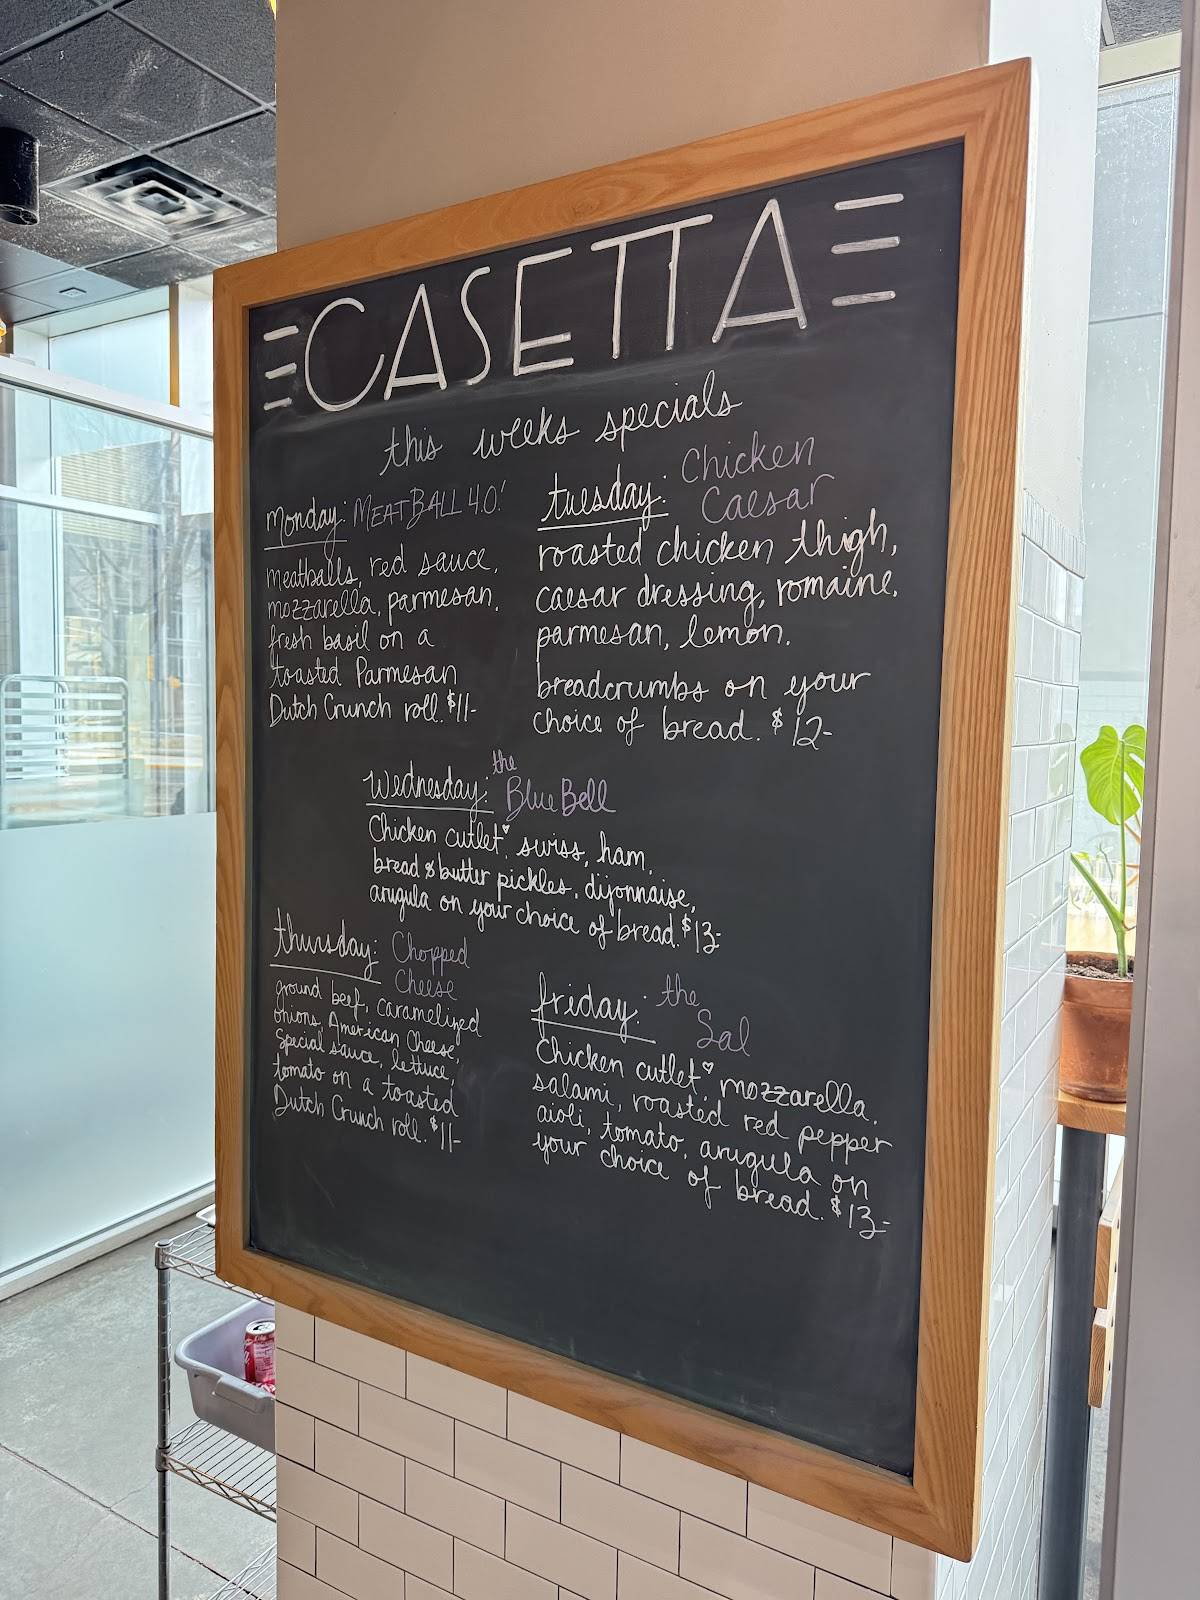 CASETTA
this weeks specials
monday: MEATBALL 4.0!
meatballs, red sauce,
mozzarella, parmesan,
fresh basil on a
toasted Parmesan
Dutch Crunch roll. $11-
tuesday: Chicken
Caesar
roasted chicken thigh,
caesar dressing, romaine,
parmesan, lemon.
breadcrumbs on your
choice of bread. $12-
wednesday: the
Blue Bell
Chicken cutlet, swiss, ham,
bread & butter pickles, dijonnaise,
arugula on your choice of bread. $13-
thursday: Chopped
Cheese
ground beef, caramelized
onions, American Cheese,
Special sauce, lettuce,
tomato on a toasted
Dutch Crunch roll. $11-
friday: the
Sal
Chicken cutlet, mozzarella,
salami, roasted red pepper
aioli, tomato, arugula on
your choice of bread. $13-